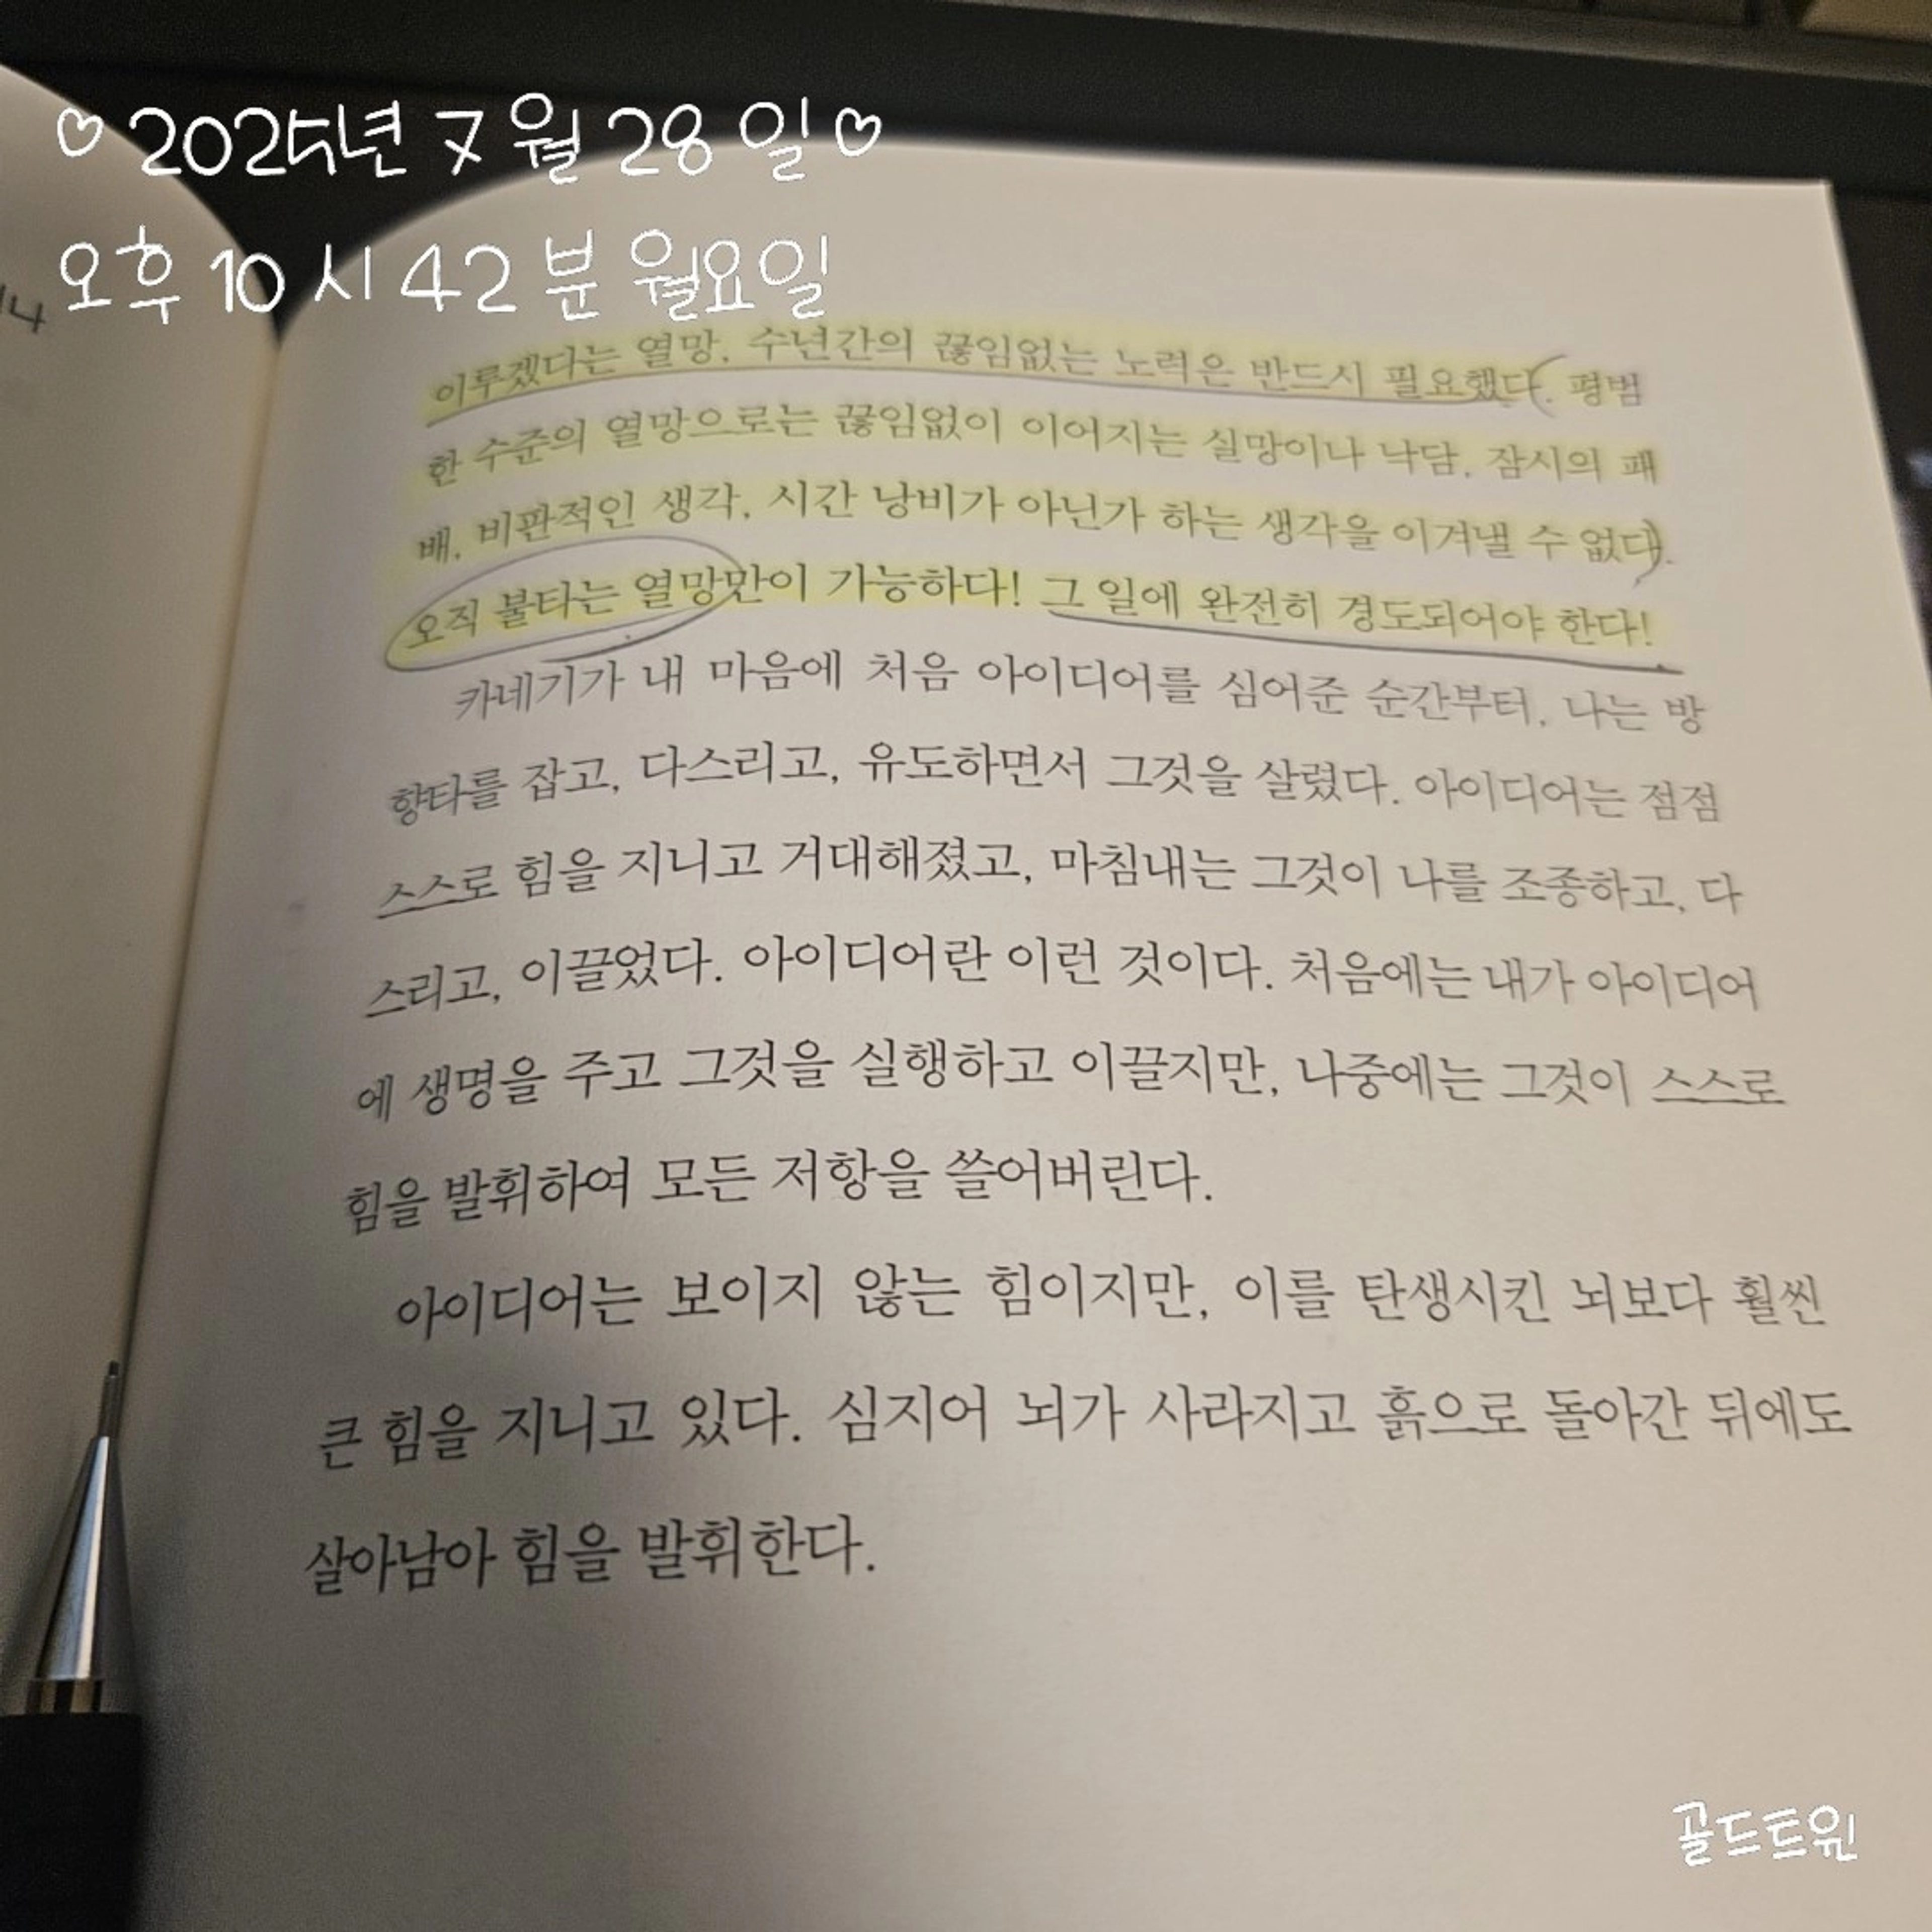 ♡2025년 7월 28일♡
오후 10시 42분 월요일
이루겠다는 열망, 수년간의 끊임없는 노력은 반드시 필요했다. 평범
한 수준의 열망으로는 끊임없이 이어지는 실망이나 낙담, 잠시의 패
배, 비판적인 생각, 시간 낭비가 아닌가 하는 생각을 이겨낼 수 없다.
오직 불타는 열망만이 가능하다! 그 일에 완전히 경도되어야 한다!
카네기가 내 마음에 처음 아이디어를 심어준 순간부터, 나는 방
향타를 잡고, 다스리고, 유도하면서 그것을 살렸다. 아이디어는 점점
스스로 힘을 지니고 거대해졌고, 마침내는 그것이 나를 조종하고, 다
스리고, 이끌었다. 아이디어란 이런 것이다. 처음에는 내가 아이디어
에 생명을 주고 그것을 실행하고 이끌지만, 나중에는 그것이 스스로
힘을 발휘하여 모든 저항을 쓸어버린다.
아이디어는 보이지 않는 힘이지만, 이를 탄생시킨 뇌보다 훨씬
큰 힘을 지니고 있다. 심지어 뇌가 사라지고 흙으로 돌아간 뒤에도
살아남아 힘을 발휘한다.
골드트윈